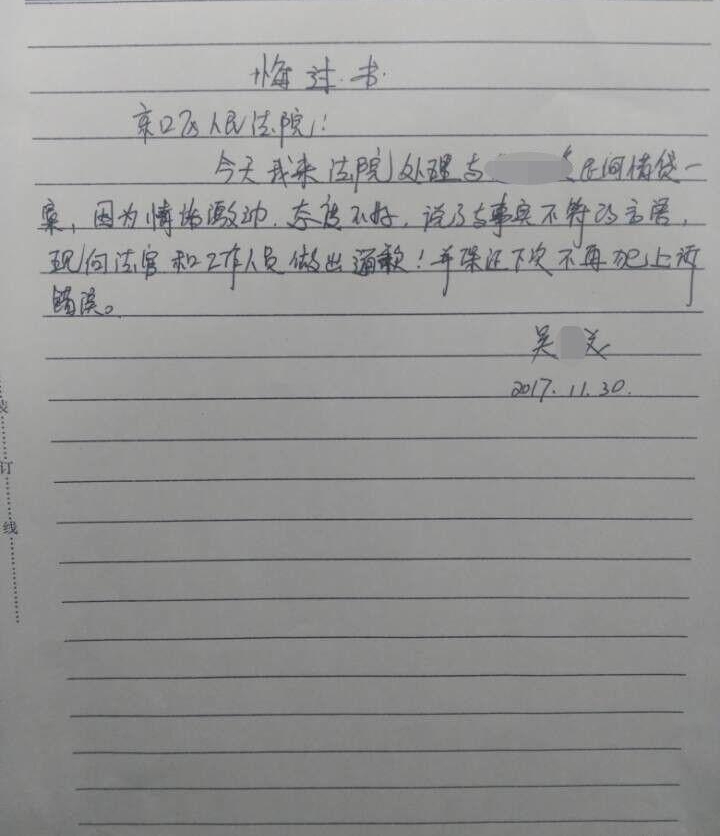 悔过书
京口区人民法院:
今天我来法院处理与 民间借贷一
案，因为情绪激动，态度不好，说了与事实不符的言语，
现向法官和工作人员做出道歉！并保证下次不再犯上诉
错误。
吴
2017.11.30.
装
订
线